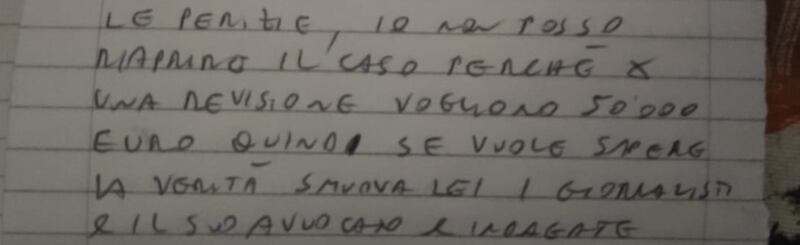 LE PERIZIE, IO NON POSSO
RIAPRIRO IL CASO PERCHÈ X
UNA REVISIONE VOGLIONO 50'000
EURO QUINDI SE VUOLE SAPERE
LA VERITÀ SMUOVA LEI I GIORNALISTI
E IL SUO AVVOCATO E INDAGATE